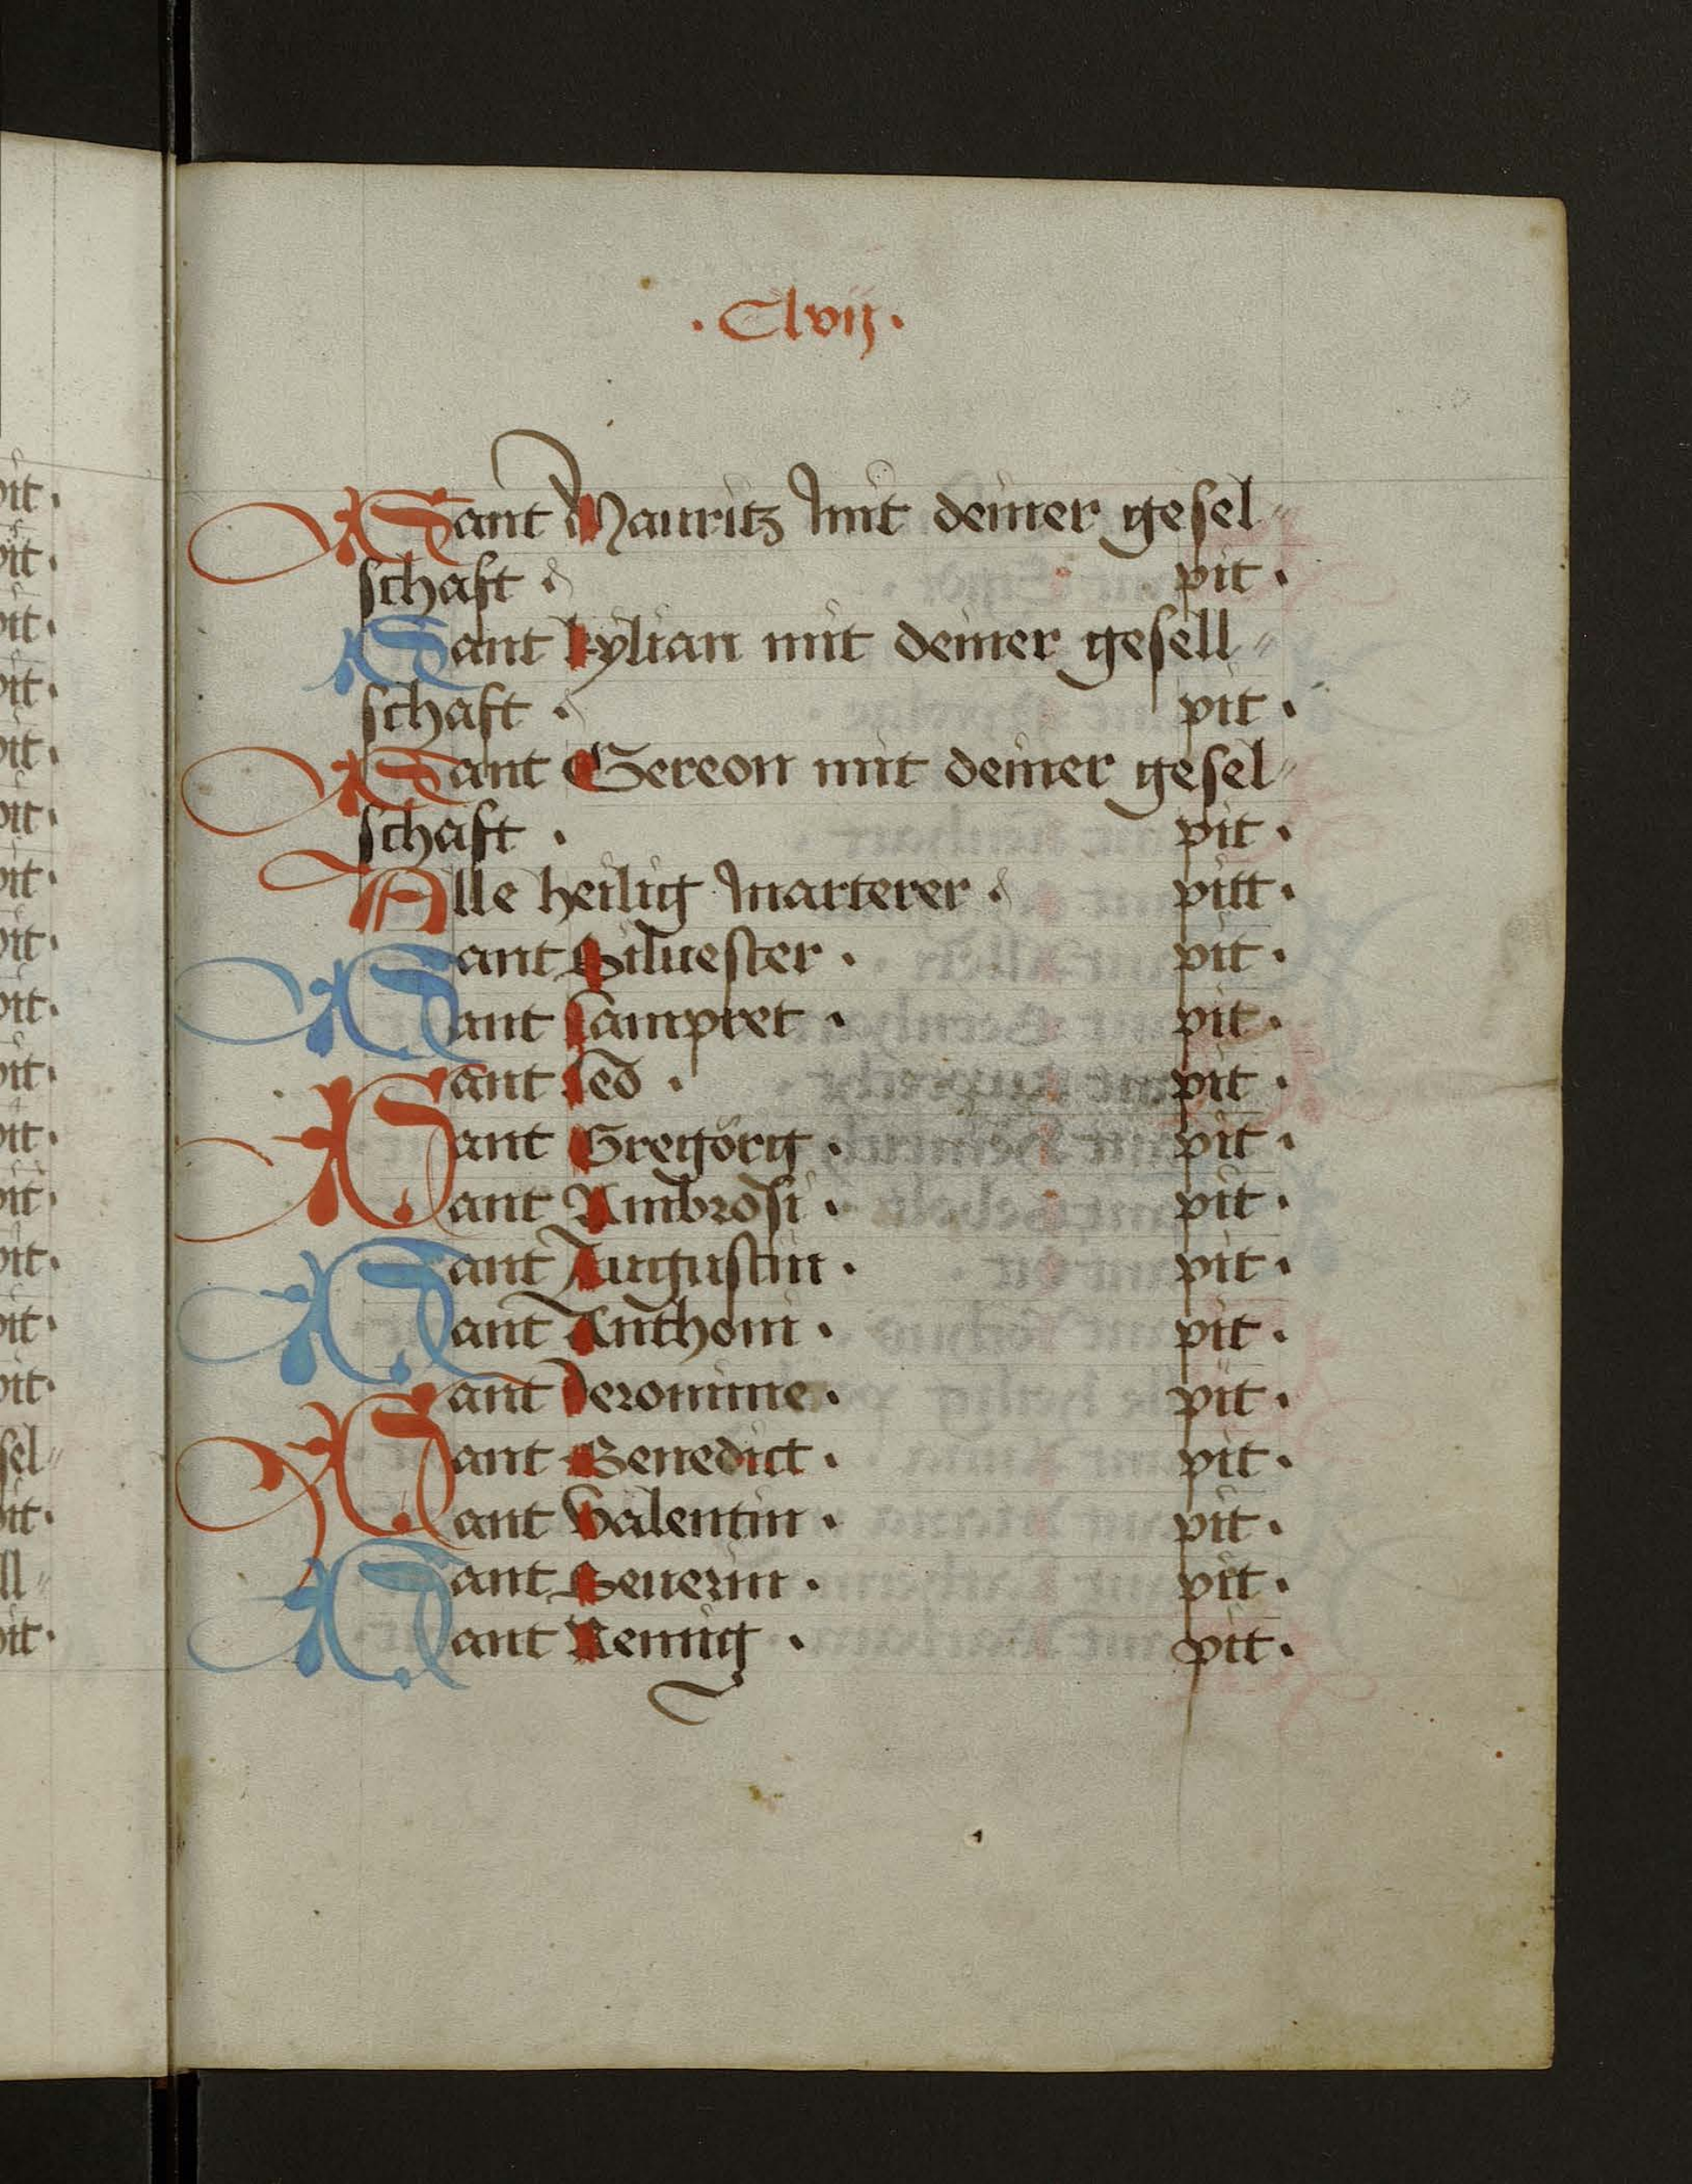 · Clvij ·
Sant Mauritz mit deiner gesel-
schaft · pit ·
Sant kylian mit deiner gesell-
schaft · pit ·
Sant Gereon mit deiner gesel-
schaft · pit ·
Alle heilig marterer · pitt ·
Sant Siluester · pit ·
Sant lampret · pit ·
Sant leo · pit ·
Sant Gregörg · pit ·
Sant Ambrosi · pit ·
Sant Augustin · pit ·
Sant Anthoni · pit ·
Sant Jeronime · pit ·
Sant Benedict · pit ·
Sant valentin · pit ·
Sant Seuerin · pit ·
Sant Remig · pit ·